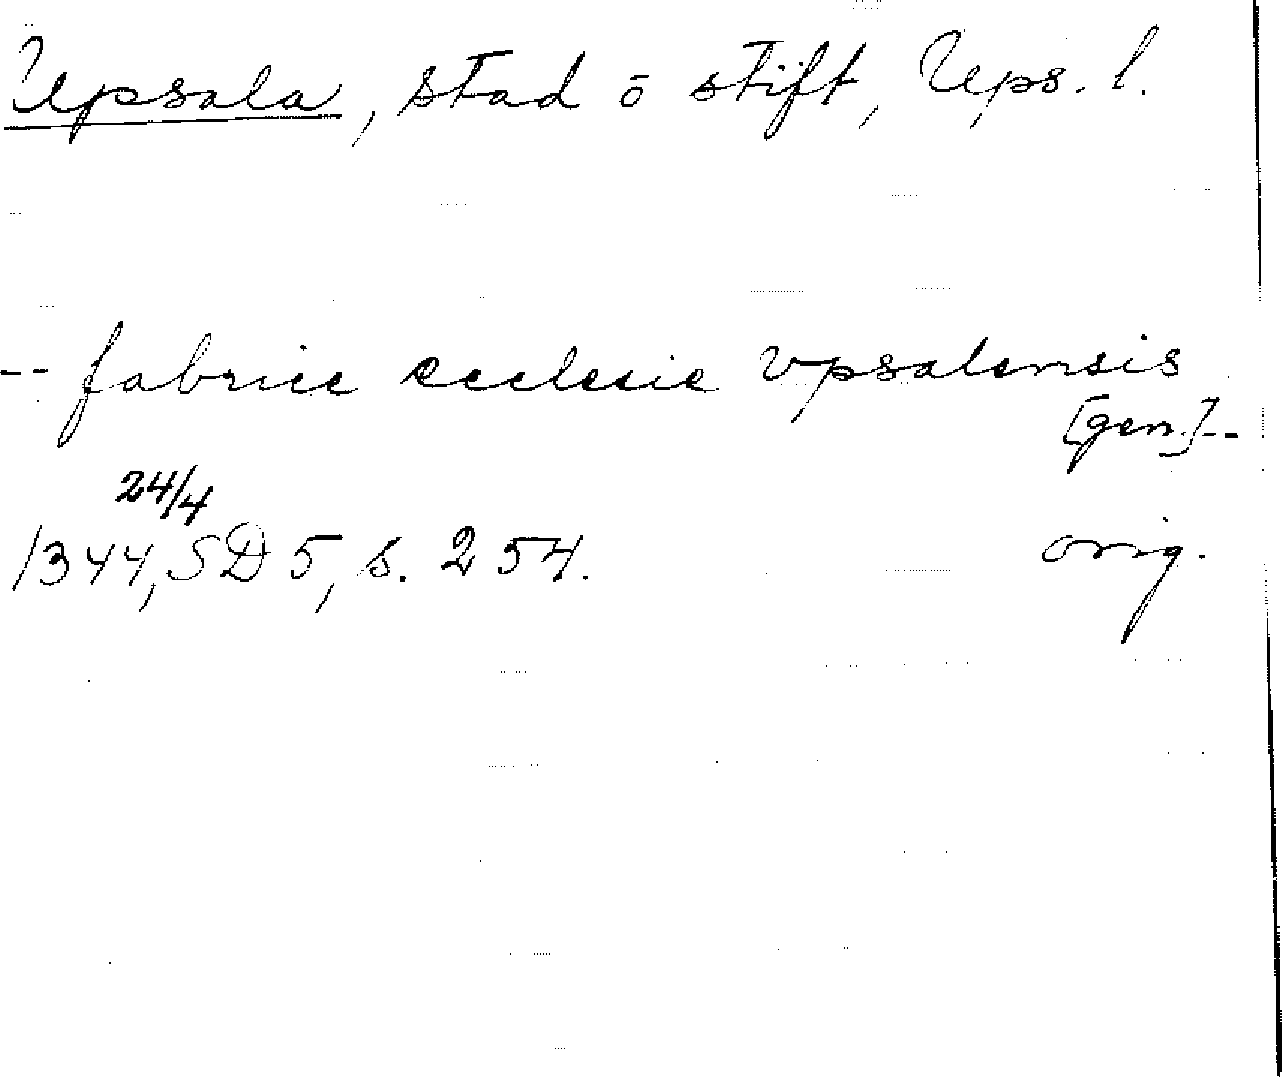 Upsala, stad o stift, Ups. l.
-- fabrice ecclesie vpsalensis
[gen.]--
24/4
1344, SD 5, s. 254.
orig.